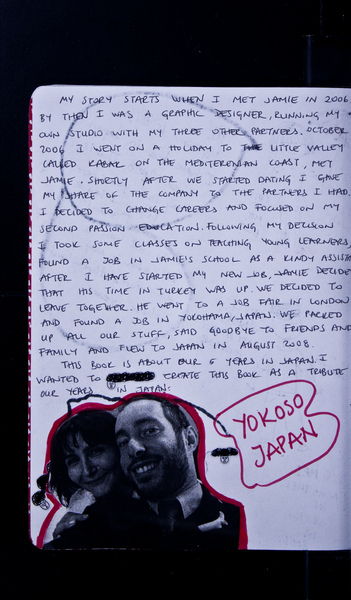 MY STORY STARTS WHEN I MET JAMIE IN 2006.
BY THEN I WAS A GRAPHIC DESIGNER, RUNNING MY
OWN STUDIO WITH MY THREE OTHER PARTNERS. OCTOBER
2006 I WENT ON A HOLIDAY TO THE LITTLE VALLEY
CALLED KABAK ON THE MEDITERENIAN COAST, MET
JAMIE. SHORTLY AFTER WE STARTED DATING I GAVE
MY SHARE OF THE COMPANY TO THE PARTNERS I HAD.
I DECIDED TO CHANGE CAREERS AND FOCUSED ON MY
SECOND PASSION EDUCATION. FOLLOWING MY DECISION
I TOOK SOME CLASSES ON TEACHING YOUNG LEARNERS,
FOUND A JOB IN JAMIE'S SCHOOL AS A KINDY ASSISTA
AFTER I HAVE STARTED MY NEW JOB, JAMIE DECIDE
THAT HIS TIME IN TURKEY WAS UP. WE DECIDED TO
LEAVE TOGETHER. HE WENT TO A JOB FAIR IN LONDON
AND FOUND A JOB IN YOKOHAMA, JAPAN. WE PACKED
UP ALL OUR STUFF, SAID GOODBYE TO FRIENDS AND
FAMILY AND FLEW TO JAPAN IN AUGUST 2008.
THIS BOOK IS ABOUT OUR 5 YEARS IN JAPAN. I
WANTED TO CREATE THIS BOOK AS A TRIBUTE
OUR YEARS IN JAPAN:
YOKOSO
JAPAN